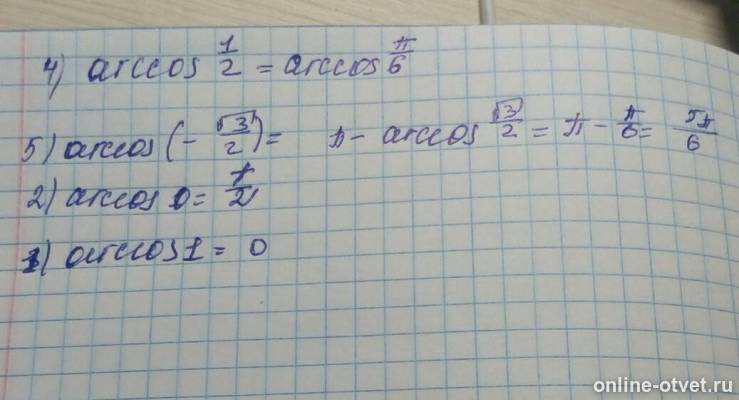 4) arccos 1/2 = arccos π/6
5) arccos (- √3/2) = π - arccos √3/2 = π - π/6 = 5π/6
2) arccos 0 = π/2
1) arccos 1 = 0
online-otvet.ru